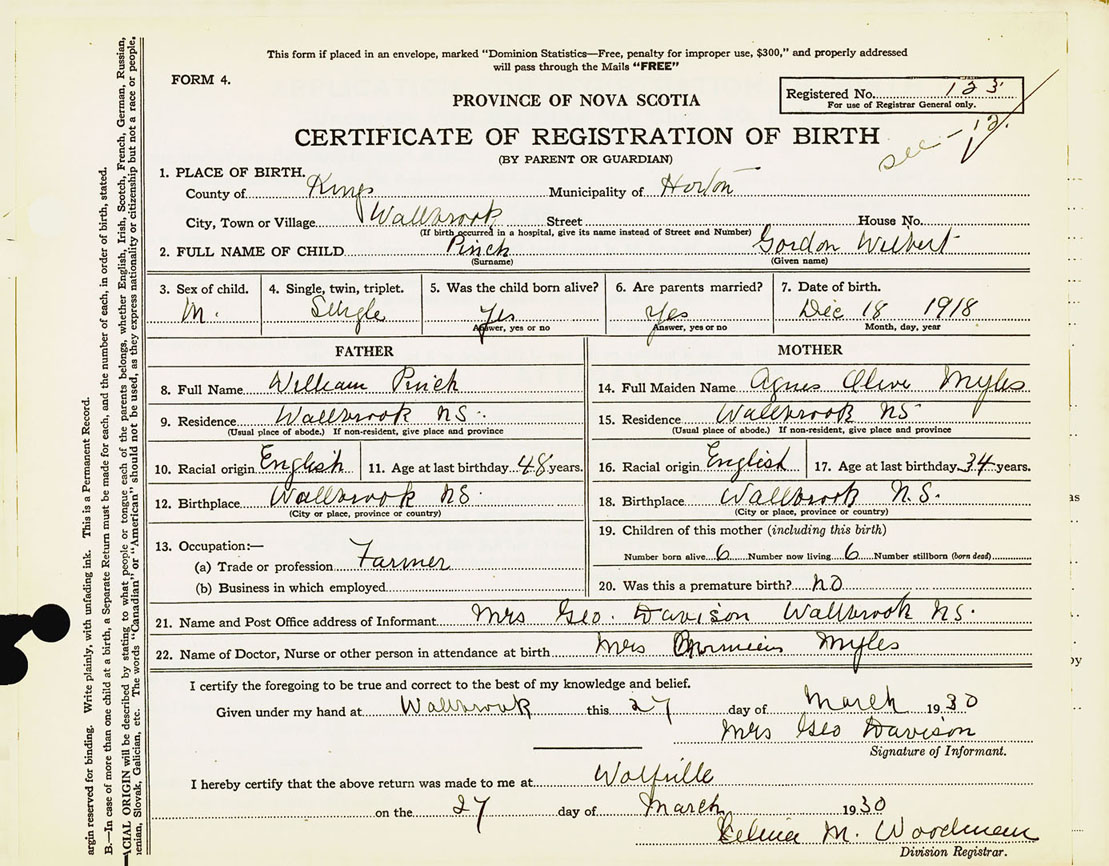 This form if placed in an envelope, marked "Dominion Statistics—Free, penalty for improper use, $300," and properly addressed
will pass through the Mails "FREE"
FORM 4.
Registered No. 123
For use of Registrar General only.
PROVINCE OF NOVA SCOTIA
see - 12
CERTIFICATE OF REGISTRATION OF BIRTH
(BY PARENT OR GUARDIAN)
1. PLACE OF BIRTH.
County of Kings Municipality of Horton
City, Town or Village Wallbrook Street House No.
(If birth occurred in a hospital, give its name instead of Street and Number)
2. FULL NAME OF CHILD Pinch Gordon Wilbert
(Surname) (Given name)
3. Sex of child. 4. Single, twin, triplet. 5. Was the child born alive? 6. Are parents married? 7. Date of birth.
M. Single Yes Yes Dec 18 1918
Answer, yes or no Answer, yes or no Month, day, year
FATHER MOTHER
8. Full Name William Pinch 14. Full Maiden Name Agnes Olive Myles
9. Residence Wallbrook NS. 15. Residence Wallbrook NS
(Usual place of abode.) If non-resident, give place and province (Usual place of abode.) If non-resident, give place and province
10. Racial origin English 11. Age at last birthday 48 years. 16. Racial origin English 17. Age at last birthday 34 years.
12. Birthplace Wallbrook NS. 18. Birthplace Wallbrook N.S.
(City or place, province or country) (City or place, province or country)
13. Occupation:— 19. Children of this mother (including this birth)
Number born alive 6 Number now living 6 Number stillborn (born dead)
(a) Trade or profession Farmer
(b) Business in which employed 20. Was this a premature birth? no
21. Name and Post Office address of Informant Mrs Geo. Davison Wallbrook NS.
22. Name of Doctor, Nurse or other person in attendance at birth Mrs Myles
I certify the foregoing to be true and correct to the best of my knowledge and belief.
Given under my hand at Wallbrook this 27 day of March 1930
Mrs Geo Davison
Signature of Informant.
I hereby certify that the above return was made to me at Wolfville
on the 27 day of March 1930
M. Woodman
Division Registrar.
argin reserved for binding. Write plainly, with unfading ink. This is a Permanent Record.
B.—In case of more than one child at a birth, a Separate Return must be made for each, and the number of each, in order of birth, stated.
CIAL ORIGIN will be described by stating to what people or tongue each of the parents belongs, whether English, Irish, Scotch, French, German, Russian,
enian, Slovak, Galician, etc. The words "Canadian" or "American" should not be used, as they express nationality or citizenship but not a race or people.